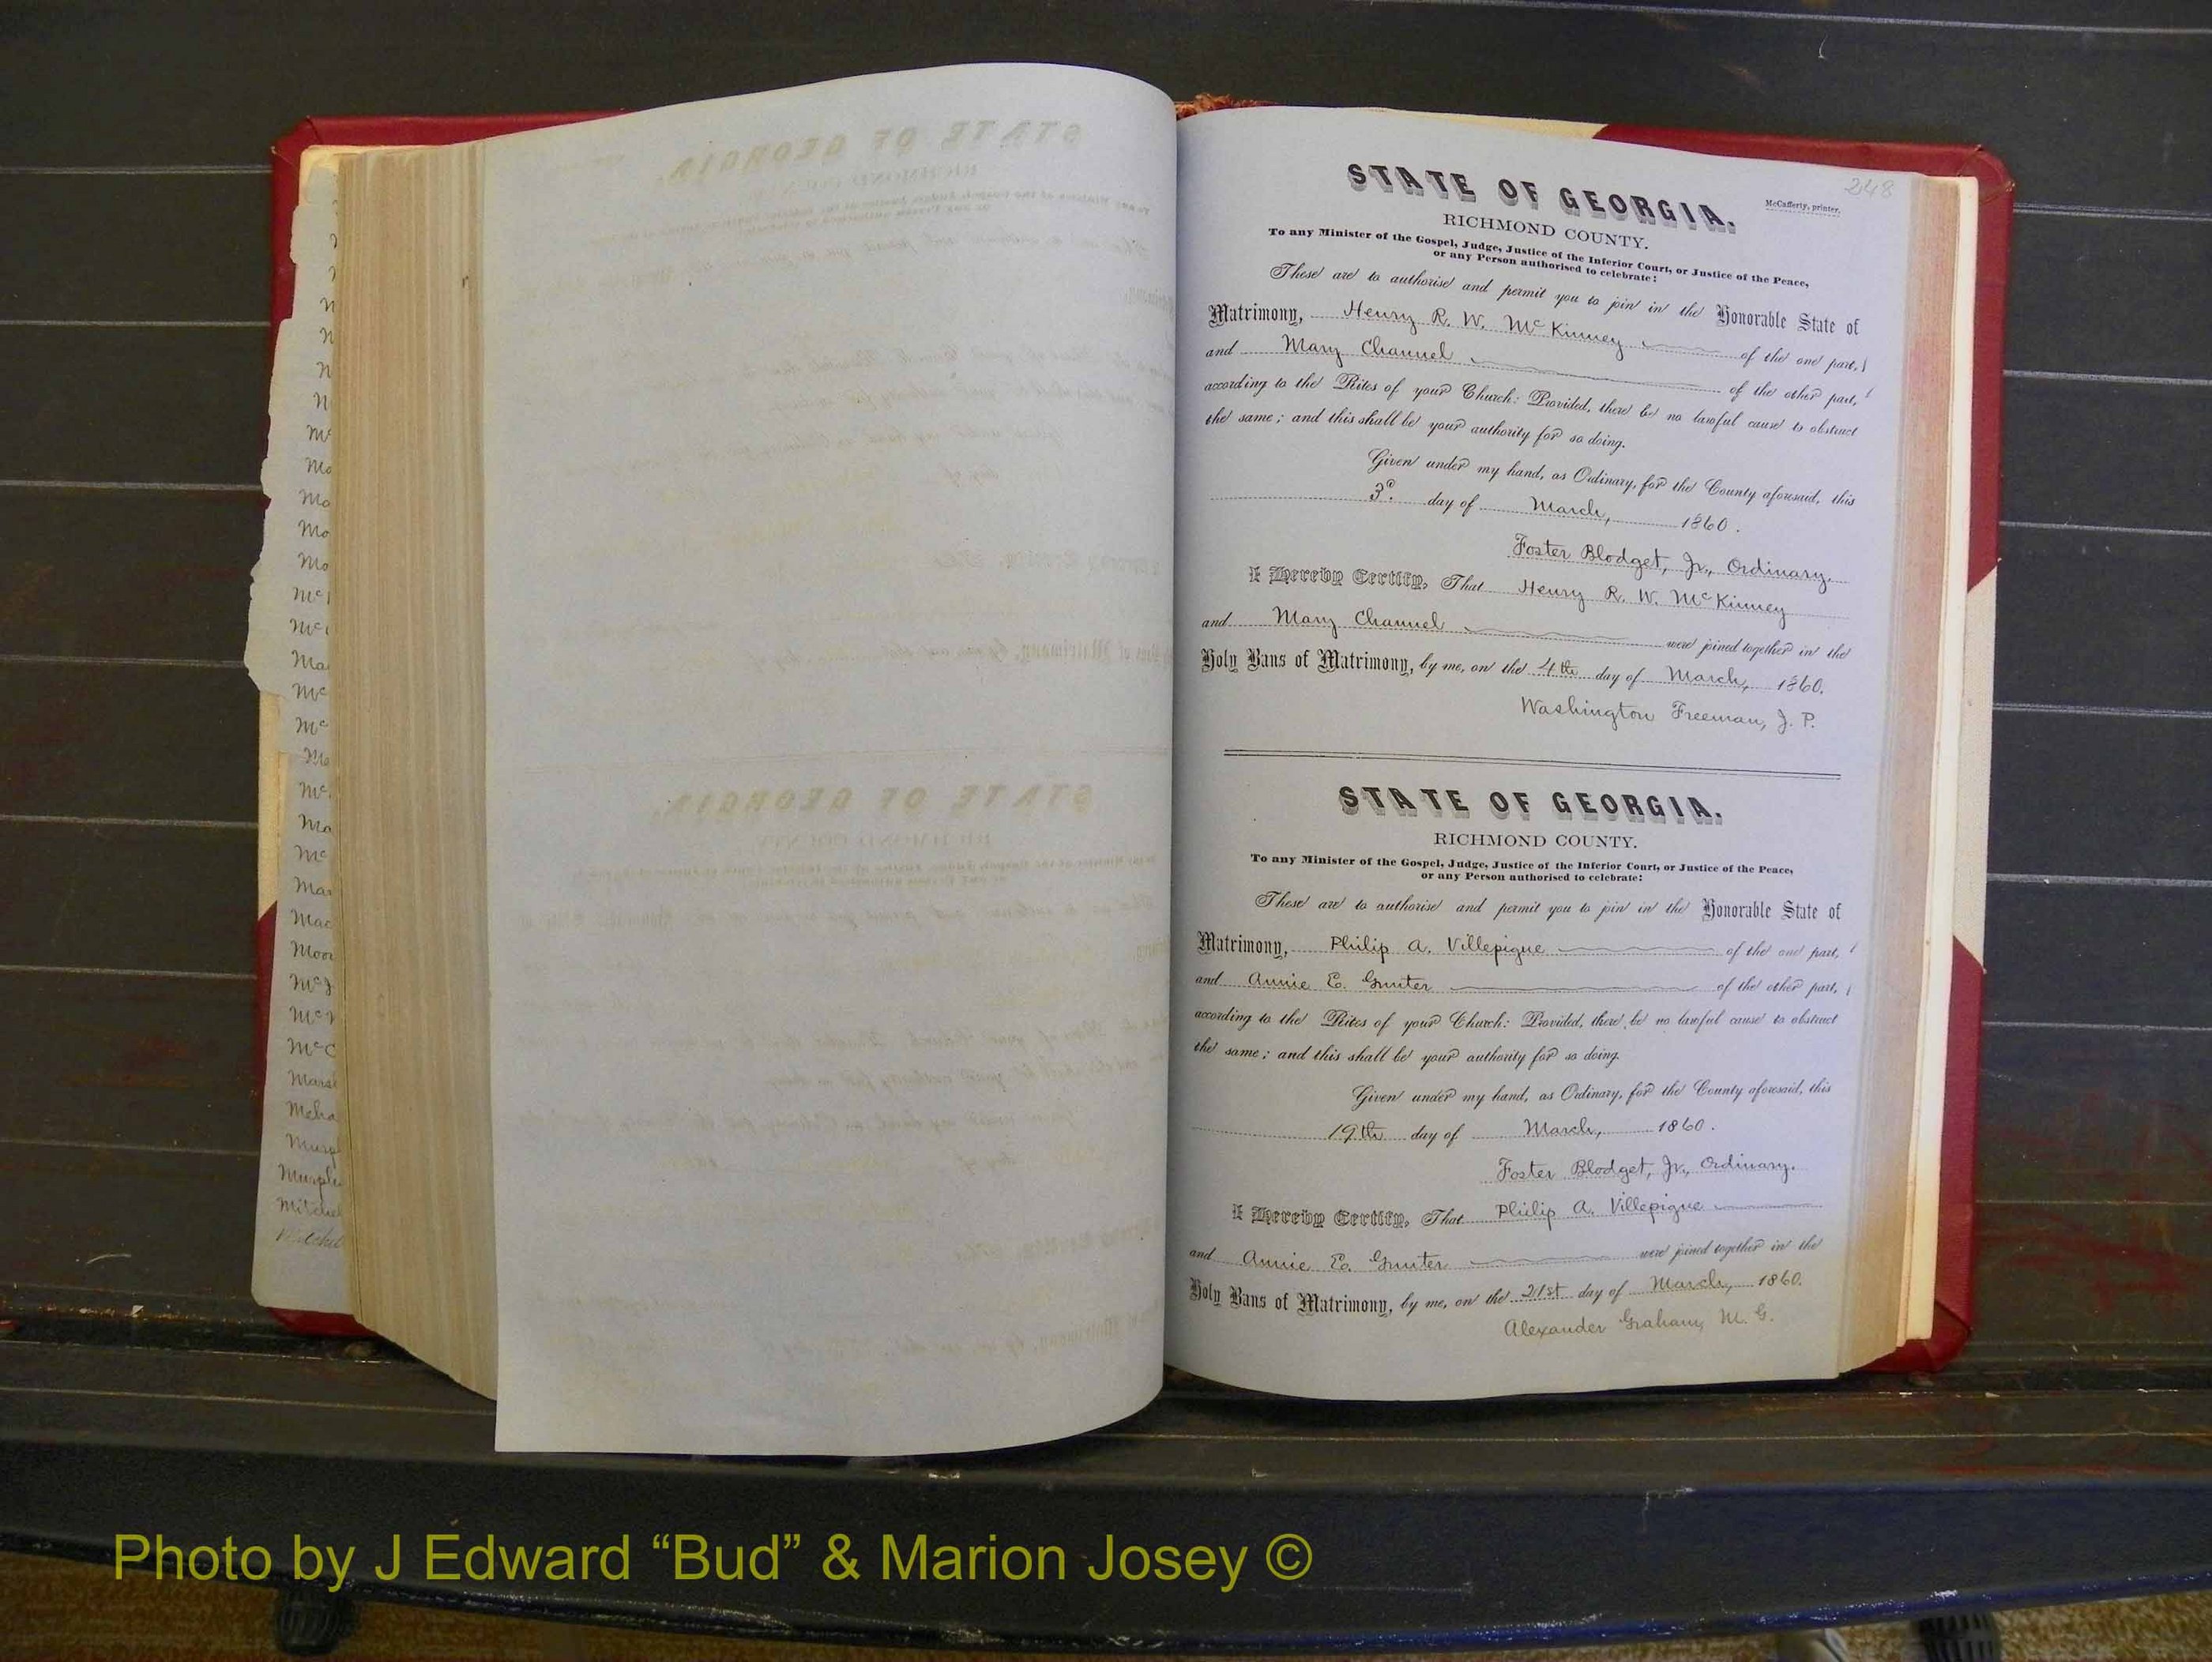 248
STATE OF GEORGIA.
McCafferty, printer.
RICHMOND COUNTY.
To any Minister of the Gospel, Judge, Justice of the Inferior Court, or Justice of the Peace,
or any Person authorised to celebrate:
These are to authorise and permit you to join in the Honorable State of
Matrimony, Henry R. W. McKinney of the one part,
and Mary Channel of the other part,
according to the Rites of your Church: Provided, there be no lawful cause to obstruct
the same; and this shall be your authority for so doing.
Given under my hand, as Ordinary, for the County aforesaid, this
3d. day of March, 1860.
Foster Blodget, Jr., Ordinary.
I Hereby Certify, That Henry R. W. McKinney
and Mary Channel were joined together in the
Holy Bans of Matrimony, by me, on the 4th day of March, 1860.
Washington Freeman, J. P.
STATE OF GEORGIA.
RICHMOND COUNTY.
To any Minister of the Gospel, Judge, Justice of the Inferior Court, or Justice of the Peace,
or any Person authorised to celebrate:
These are to authorise and permit you to join in the Honorable State of
Matrimony, Philip A. Villepigue of the one part,
and Annie E. Gunter of the other part,
according to the Rites of your Church: Provided, there be no lawful cause to obstruct
the same; and this shall be your authority for so doing.
Given under my hand, as Ordinary, for the County aforesaid, this
19th day of March, 1860.
Foster Blodget, Jr., Ordinary.
I Hereby Certify, That Philip A. Villepigue
and Annie E. Gunter were joined together in the
Holy Bans of Matrimony, by me, on the 21st day of March, 1860.
Alexander Graham, M. G.
Photo by J Edward “Bud” & Marion Josey ©